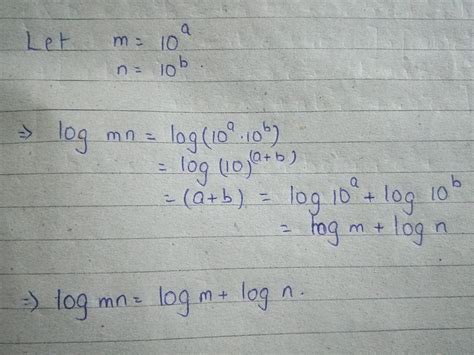 Let m = 10^a
n = 10^b.
⇒ log mn = log(10^a · 10^b)
= log (10)^(a+b)
= (a+b) = log 10^a + log 10^b
= log m + log n
⇒ log mn = log m + log n.